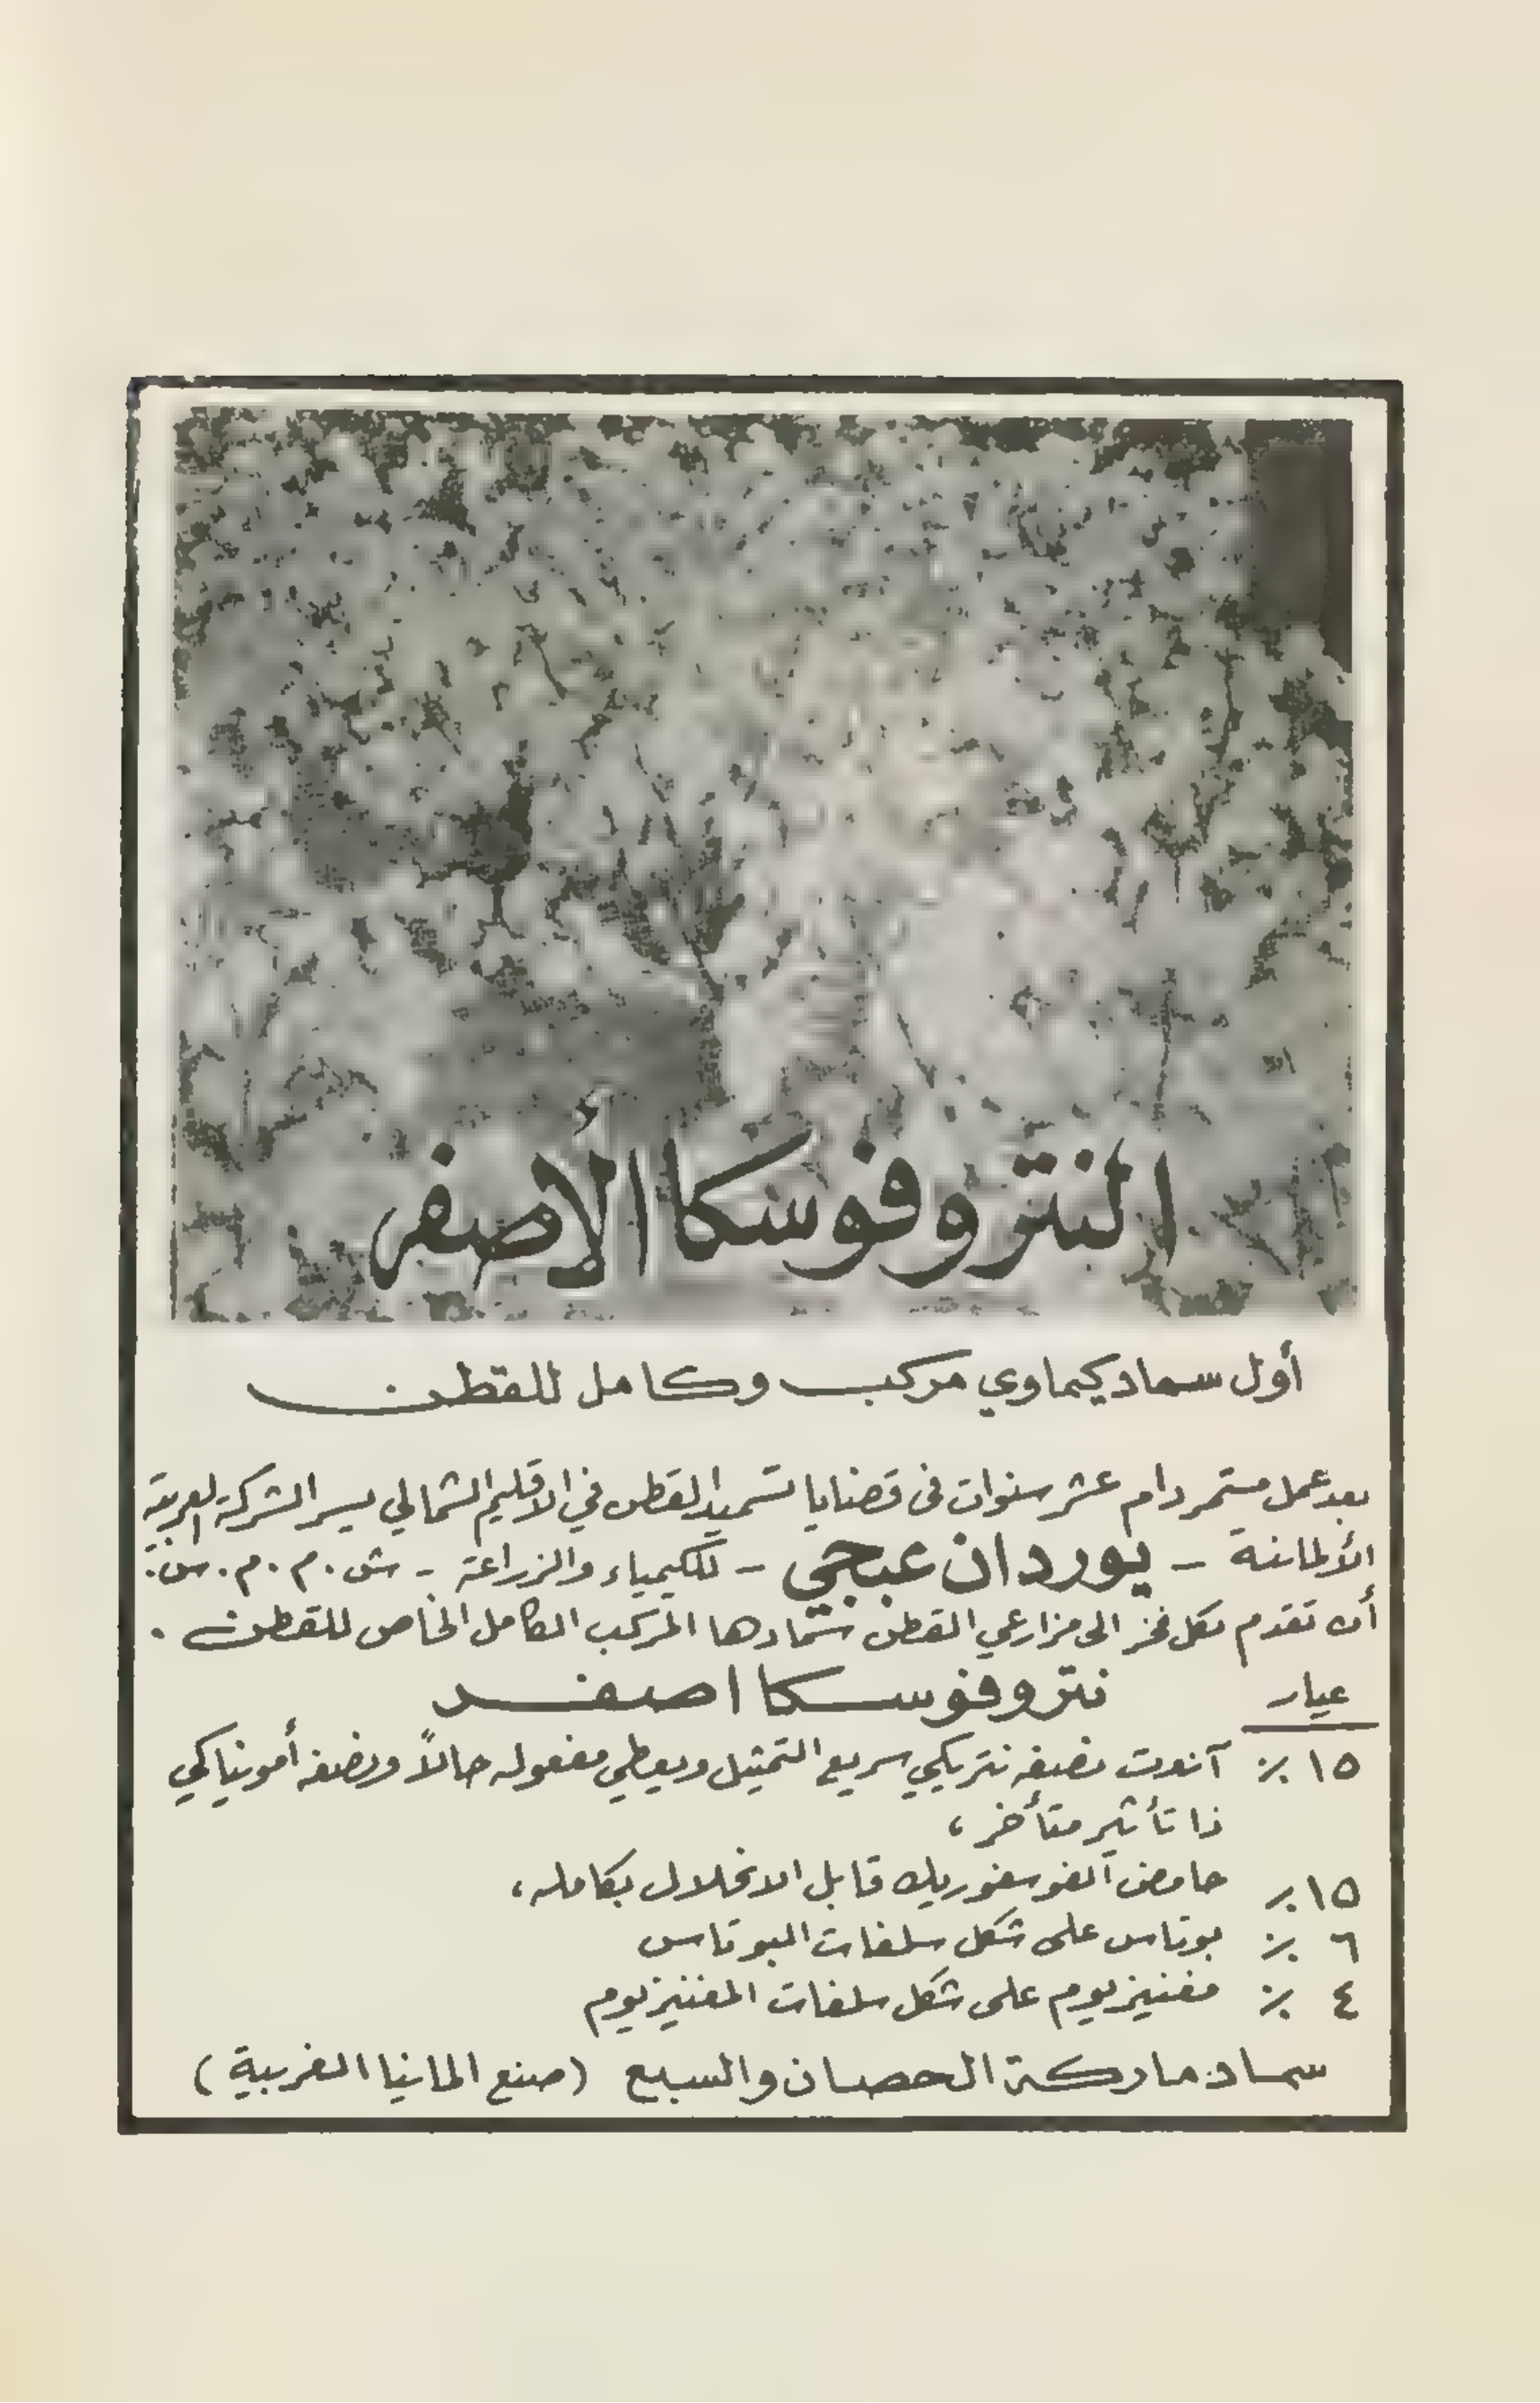 النتروفوسكا الأصفر
أول سماد كيماوي مركب وكامل للقطن
بعد عمل مستمر دام عشر سنوات في قضايا تسميد القطن في الاقليم الشمالي يسر الشركة العربية
الألمانية - يوردان عبجي - للكيمياء والزراعة - ش.م.م.س.
أن تقدم بكل فخر الى مزارعي القطن سمادها المركب الكامل الخاص للقطن.
عيار نتروفوسكا اصفر
١٥ ٪ آزوت نصفه نتريكي سريع التمثيل ويعطي مفعوله حالاً ونصفه أمونياكي
ذا تأثير متأخر ،
١٥ ٪ حامض الفوسفوريك قابل الانحلال بكامله ،
٦ ٪ بوتاس على شكل سلفات البوتاس
٤ ٪ مغنيزيوم على شكل سلفات المغنيزيوم
سماد ماركة الحصان والسبع (صنع المانيا الغربية)